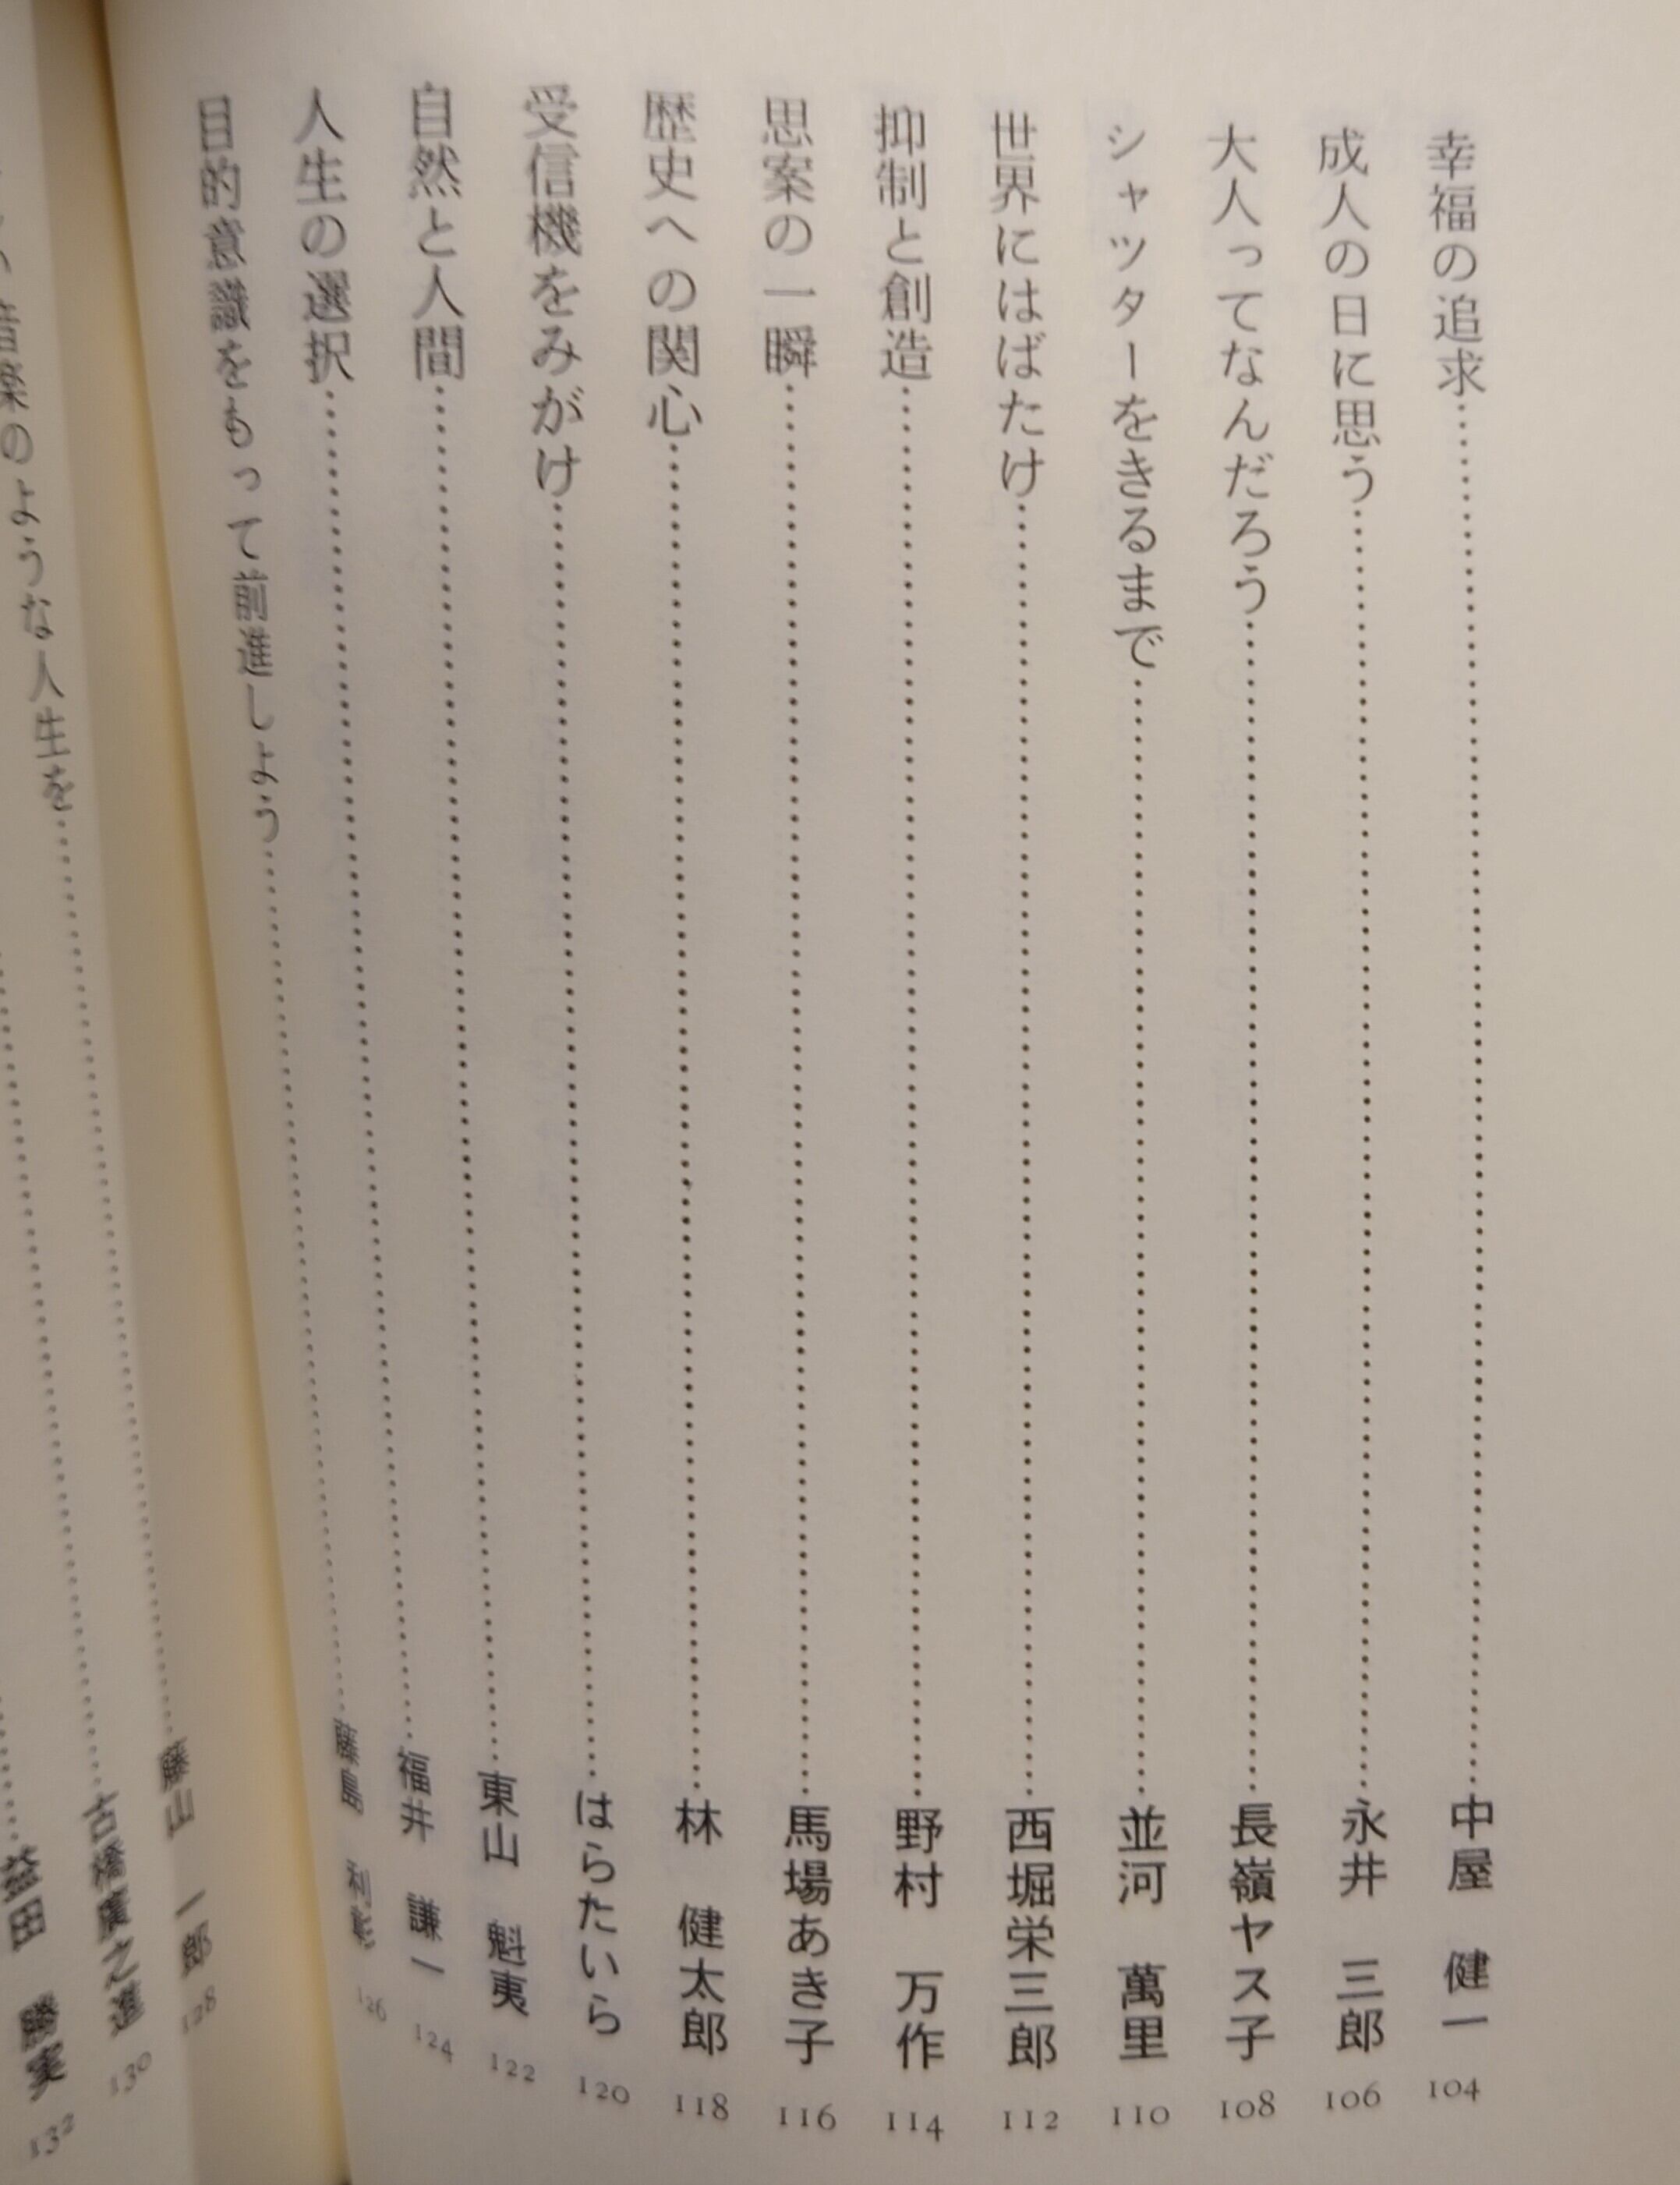 幸福の追求……中屋 健一 104
成人の日に思う……永井 三郎 106
大人ってなんだろう……長嶺ヤス子 108
シャッターをきるまで……並河 萬里 110
世界にはばたけ……西堀栄三郎 112
抑制と創造……野村 万作 114
思案の一瞬……馬場あき子 116
歴史への関心……林 健太郎 118
受信機をみがけ……はらたいら 120
自然と人間……東山 魁夷 122
人生の選択……福井 謙一 124
目的意識をもって前進しよう……藤島 利彰 126
……藤山 一郎 128
音楽のような人生を……古橋廣之進 130
……益田 勝実 132